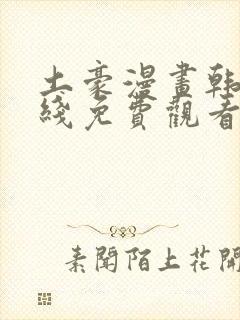 土豪漫畫韩
綫免費觀看
素聞陌上花開